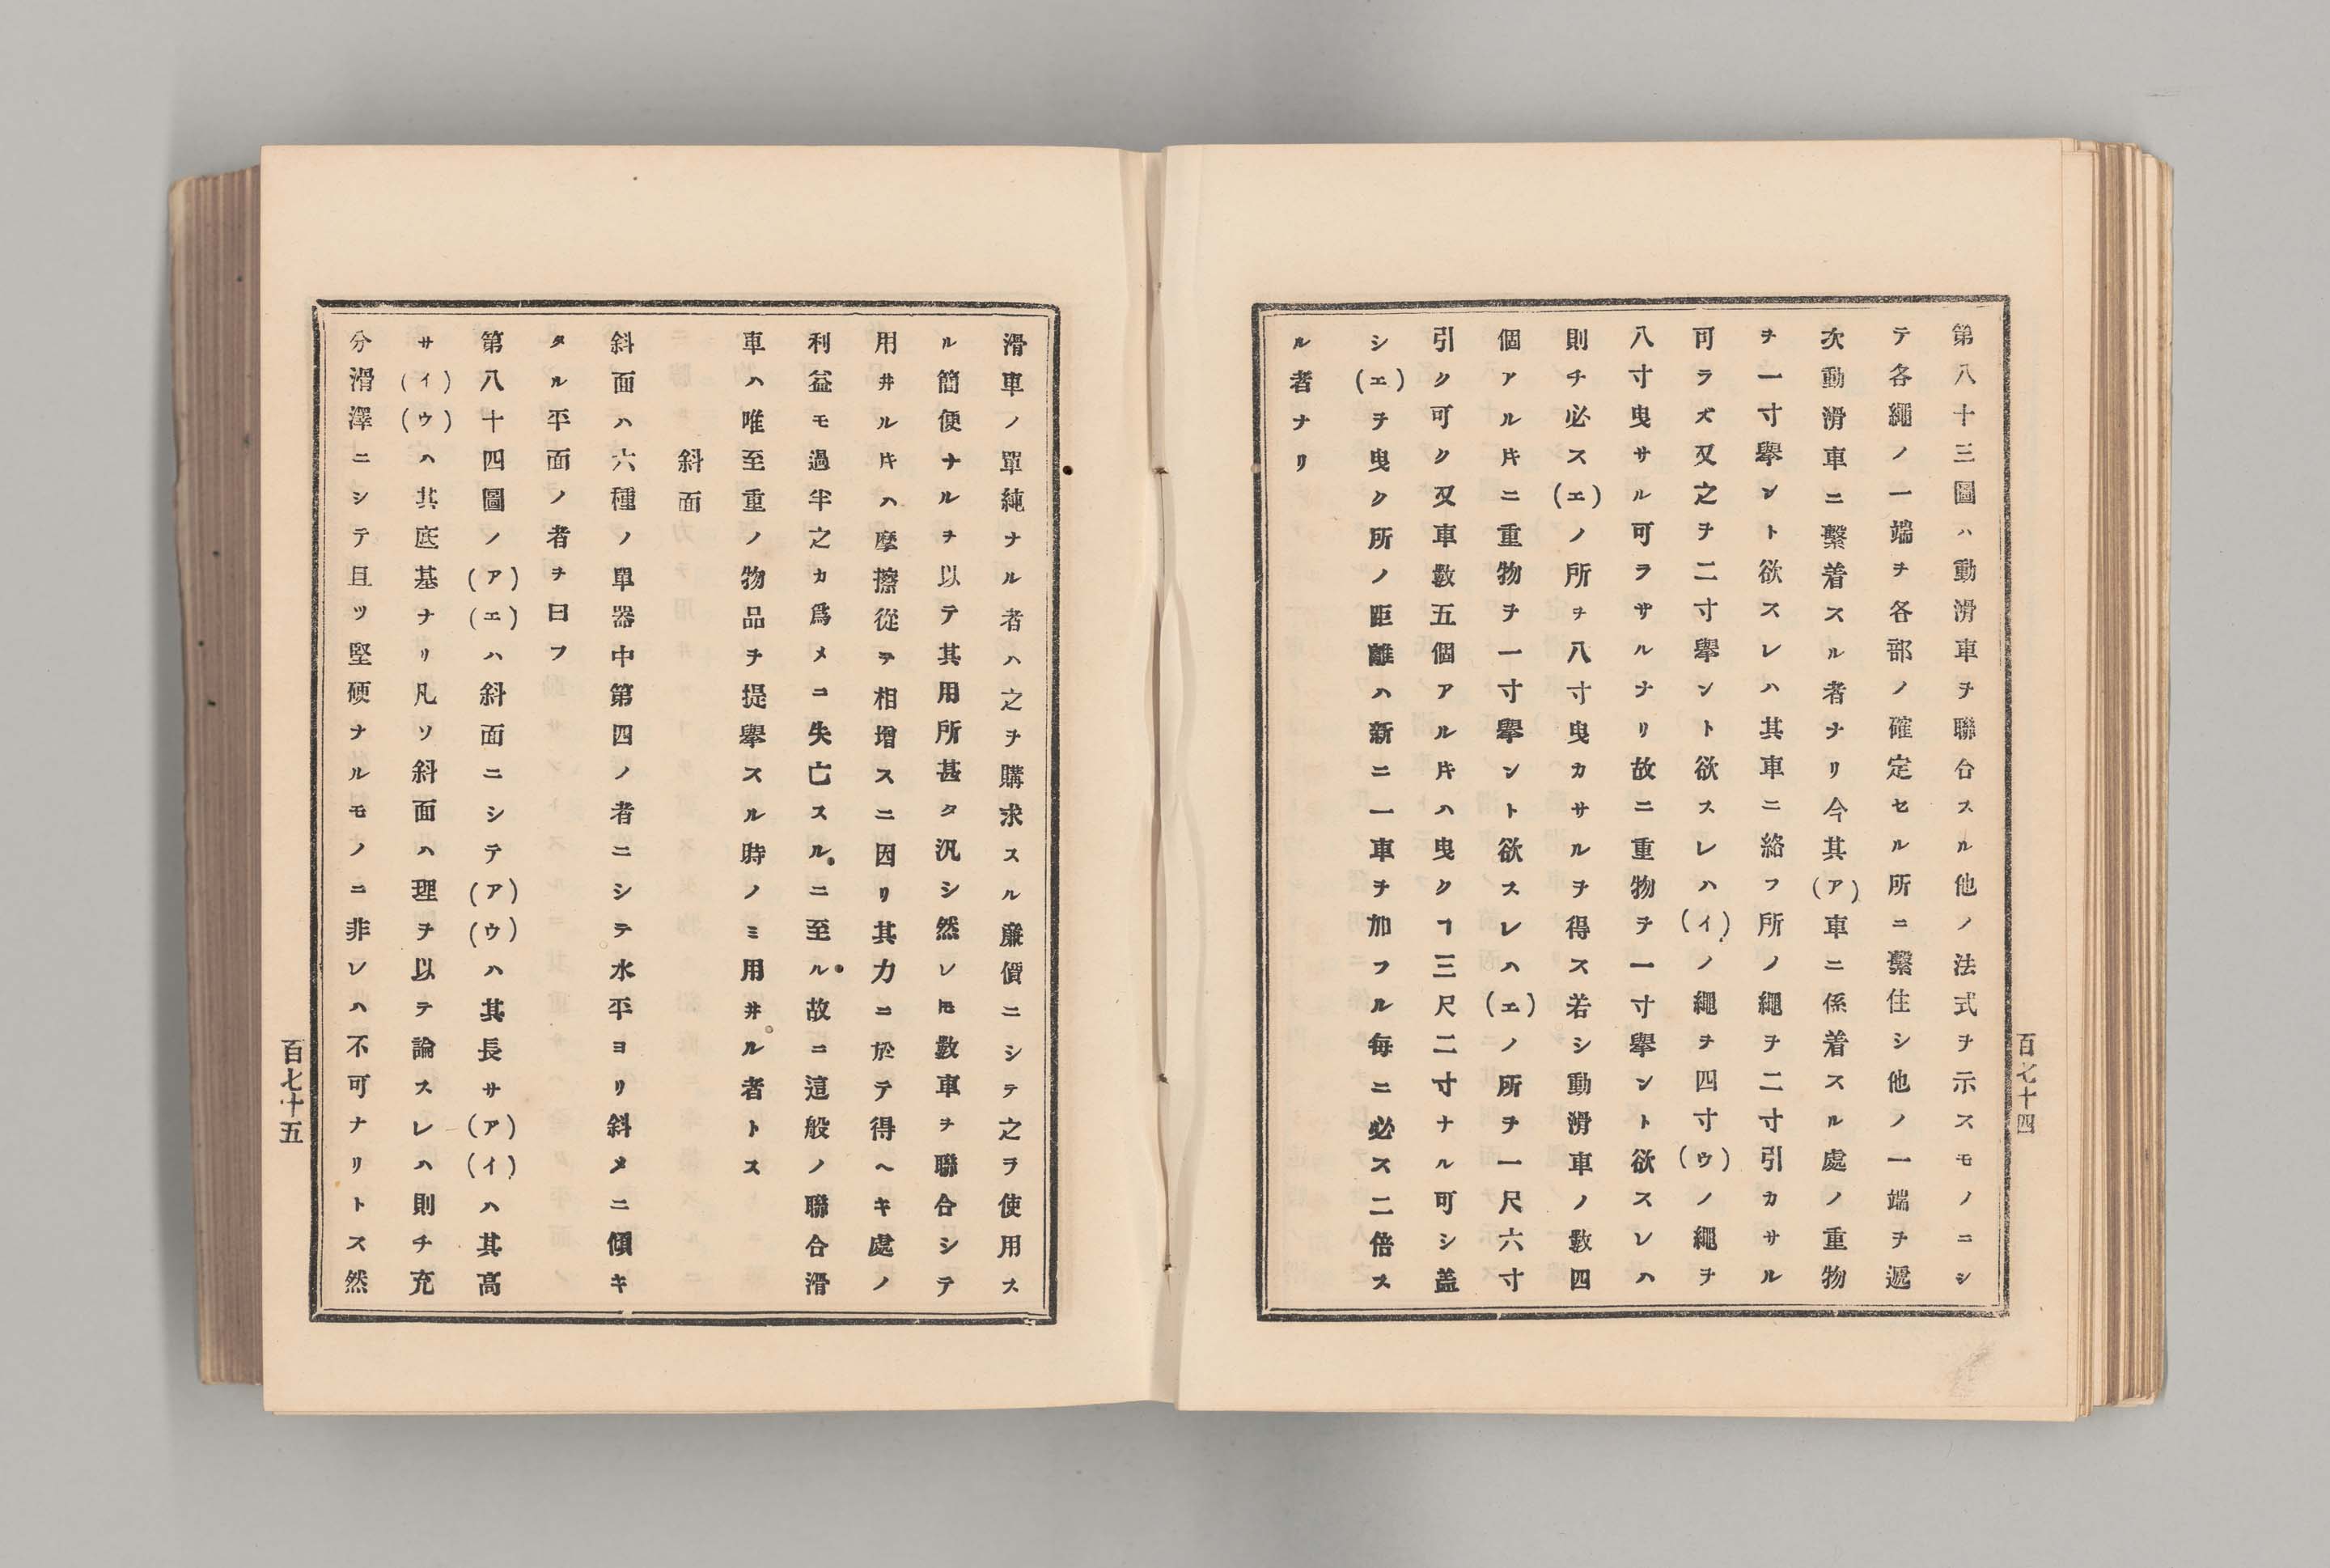 第八十三圖ハ動滑車ヲ聯合スル他ノ法式ヲ示スモノニシ
テ各繩ノ一端ヲ各部ノ確定セル所ニ繫住シ他ノ一端ヲ遞
次動滑車ニ繫着スル者ナリ今其(ア)車ニ係着スル處ノ重物
ヲ一寸擧ント欲スレハ其車ニ絡フ所ノ繩ヲ二寸引カサル
可ラズ又之ヲ二寸擧ント欲スレハ(イ)ノ繩ヲ四寸(ウ)ノ繩ヲ
八寸曳サル可ラサルナリ故ニ重物ヲ一寸擧ント欲スレハ
則チ必ス(エ)ノ所ヲ八寸曳カサルヲ得ス若シ動滑車ノ數四
個アル𪜈ニ重物ヲ一寸擧ント欲スレハ(エ)ノ所ヲ一尺六寸
引ク可ク又車數五個アル𪜈ハ曳クヿ三尺二寸ナル可シ蓋
シ(エ)ヲ曳ク所ノ距離ハ新ニ一車ヲ加フル每ニ必ス二倍ス
ル者ナリ
百七十四
滑車ノ單純ナル者ハ之ヲ購求スル廉價ニシテ之ヲ使用ス
ル簡便ナルヲ以テ其用所甚タ汎シ然レ𪜈數車ヲ聯合シテ
用井ル𪜈ハ摩擦從テ相增スニ因リ其力ニ於テ得ヘキ處ノ
利益モ過半之カ爲メニ失亡スルニ至ル故ニ這般ノ聯合滑
車ハ唯至重ノ物品ヲ提擧スル時ノミ用井ル者トス
斜面
斜面ハ六種ノ單器中第四ノ者ニシテ水平ヨリ斜メニ傾キ
タル平面ノ者ヲ曰フ
第八十四圖ノ(ア)(エ)ハ斜面ニシテ(ア)(ウ)ハ其長サ(ア)(イ)ハ其高
サ(イ)(ウ)ハ其底基ナリ凡ソ斜面ハ理ヲ以テ論スレハ則チ充
分滑澤ニシテ且ツ堅硬ナルモノニ非レハ不可ナリトス然
百七十五